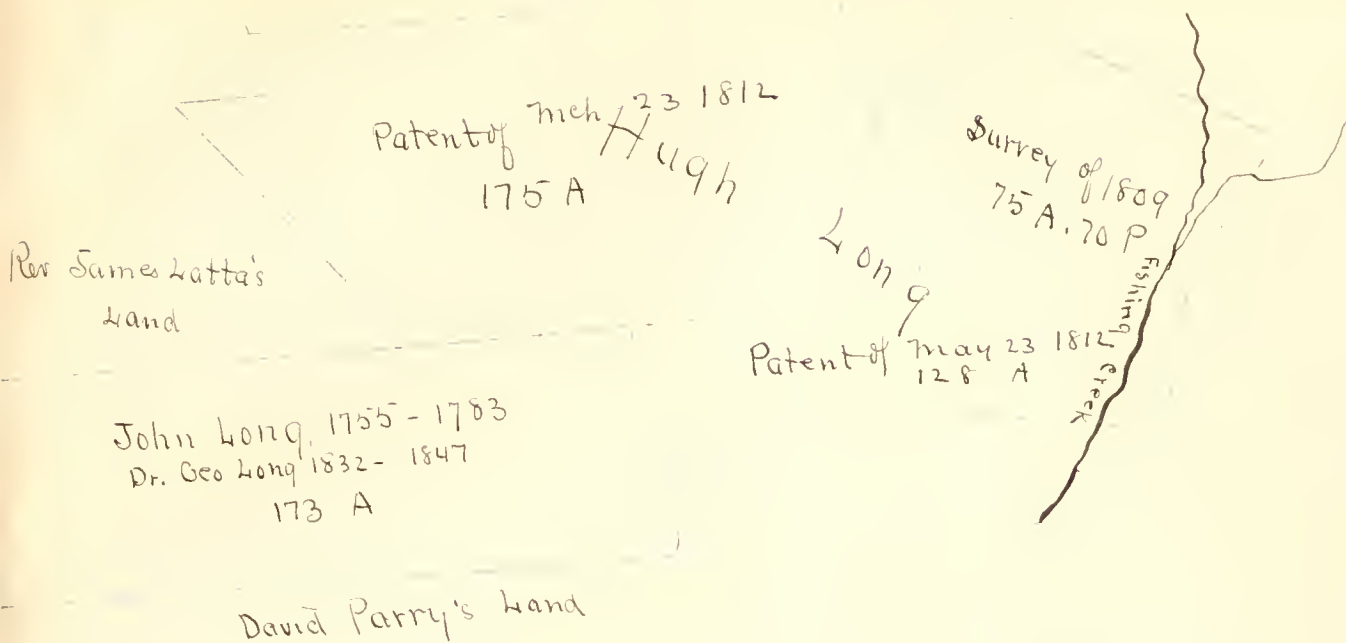 Patent of Mch 23 1812
175 A
Hugh Long
Survey of 1809
75 A. 70 P
Rev James Latta's
Land
Patent of May 23 1812
128 A
Fishing Creek
John Long, 1755 - 1783
Dr. Geo Long 1832 - 1847
173 A
David Parry's Land